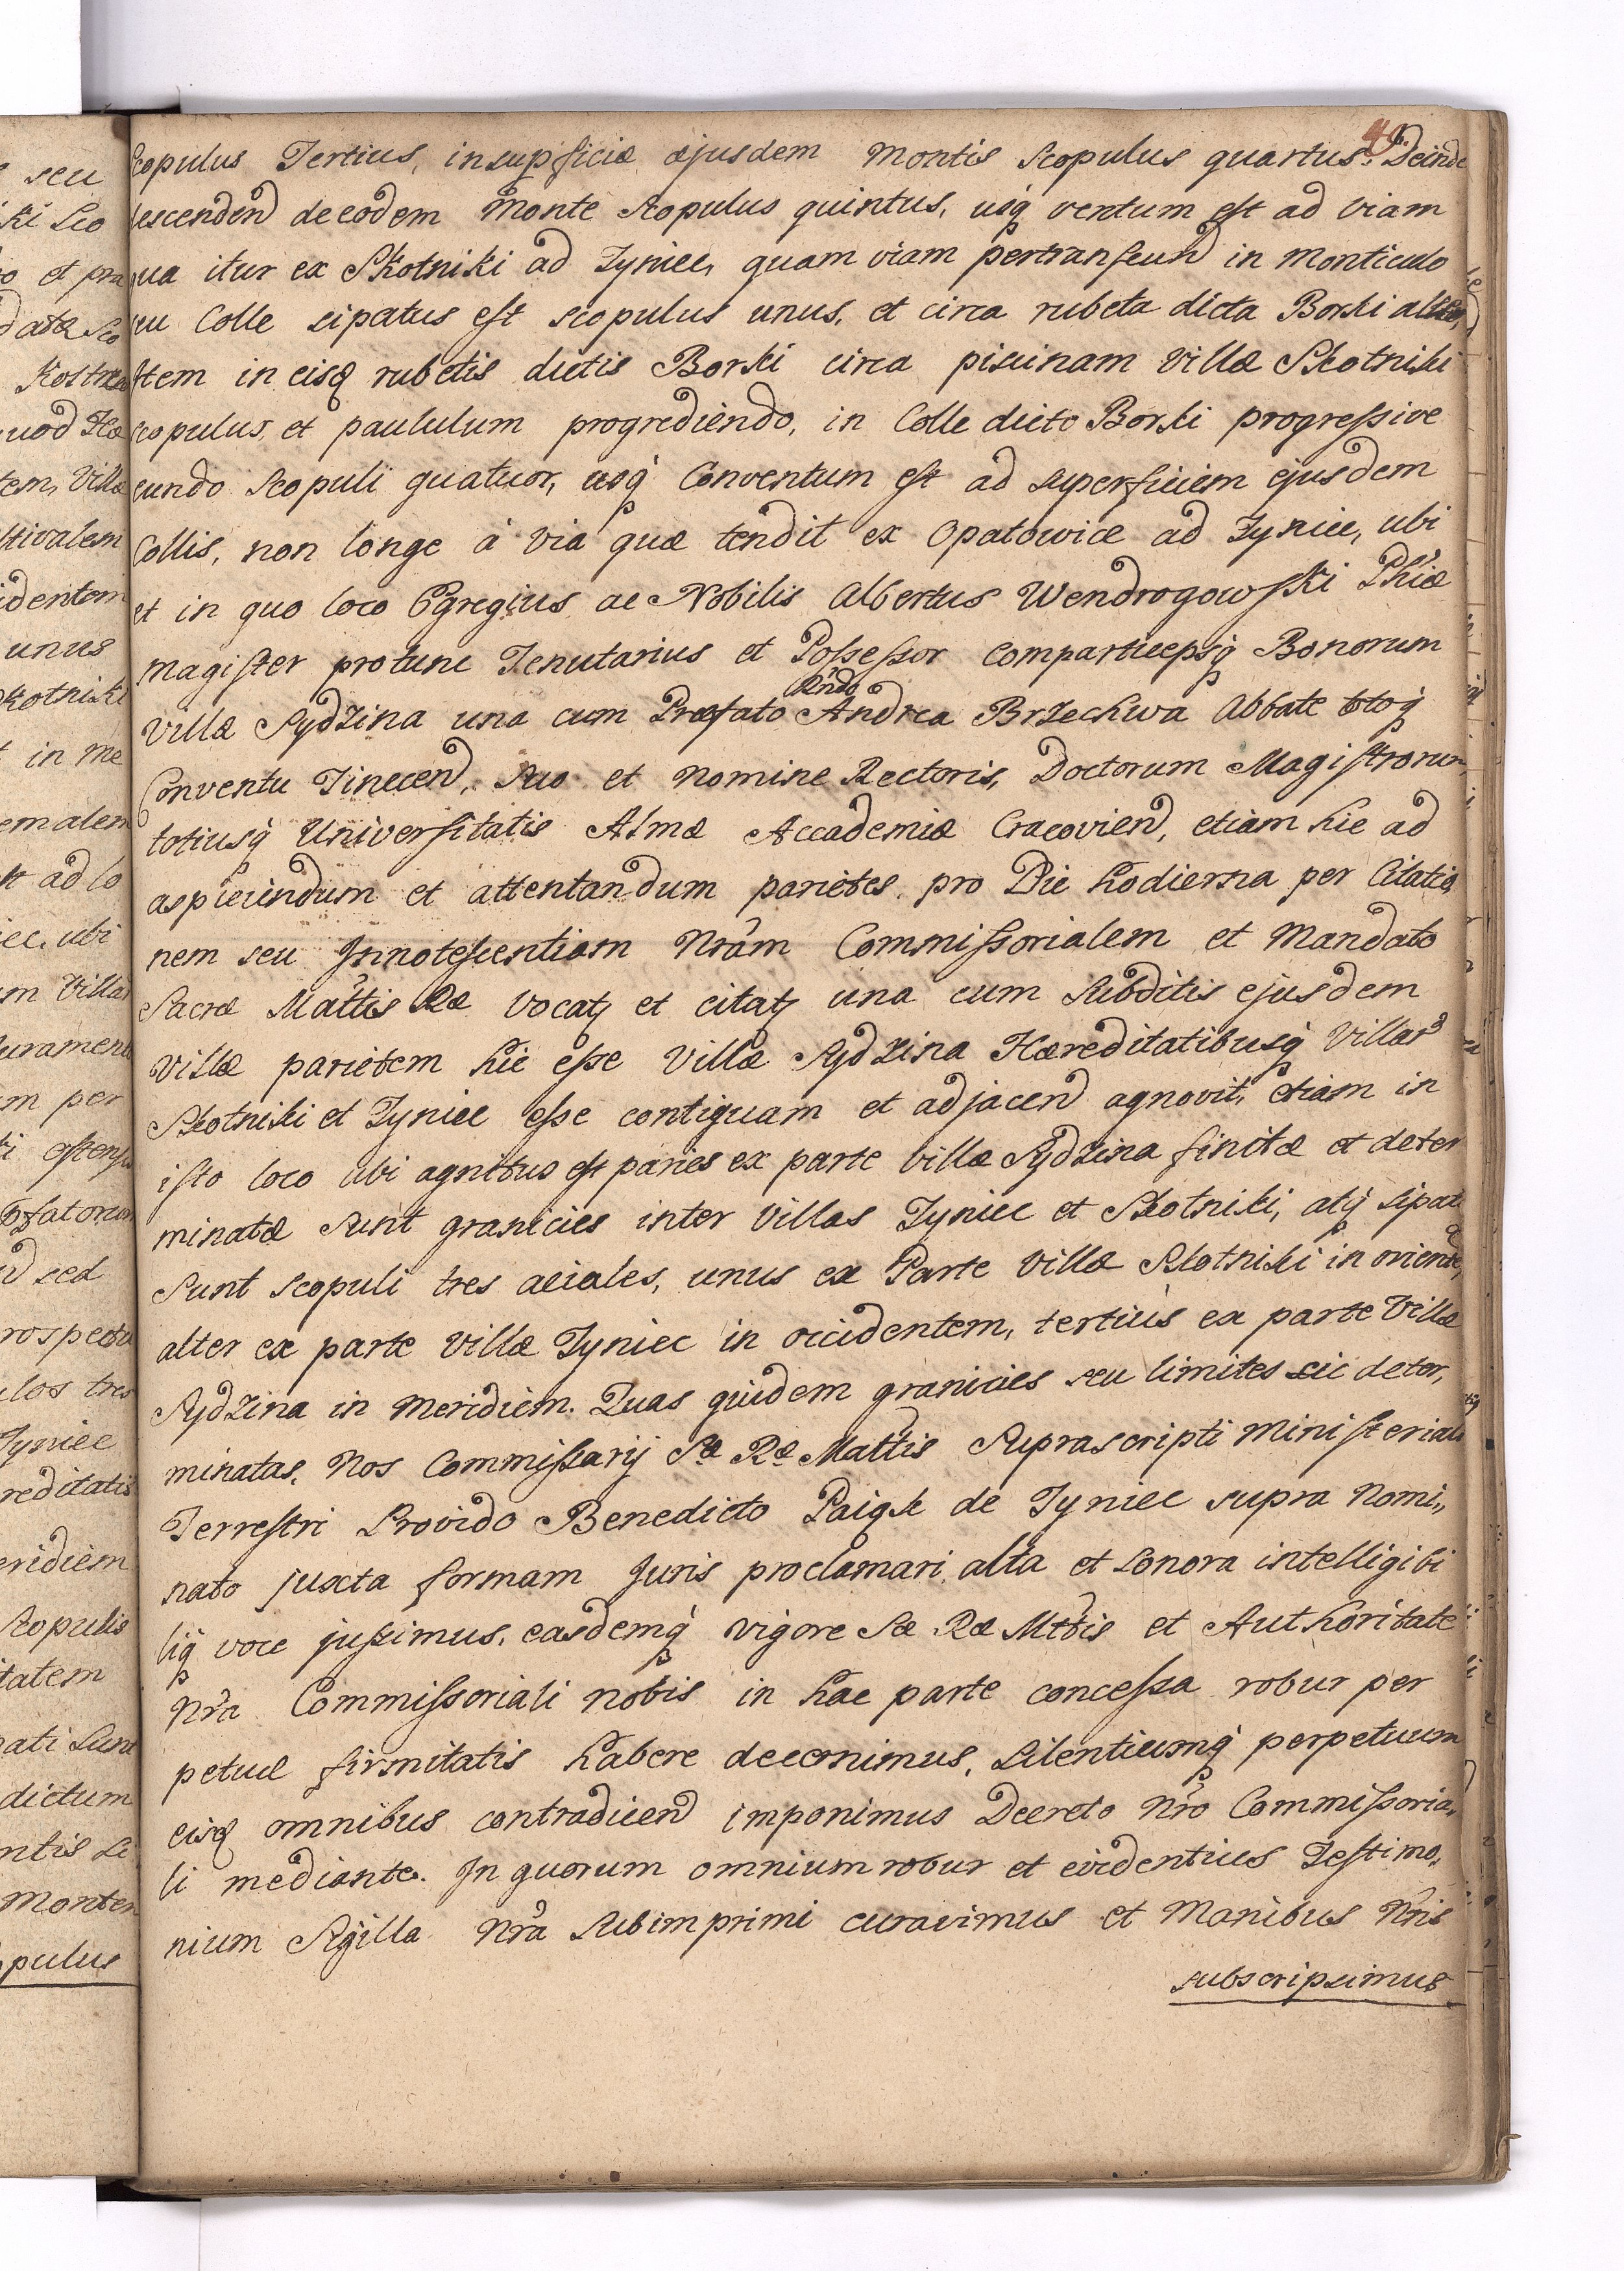 49.
Scopulus Tertius, in supficiæ ejusdem Montis Scopulus quartus. Deinde
descendend de eodem Monte Scopulus quintus, usq ventum est ad viam
qua itur ex Skotniki ad Tyniec, quam viam pertranseund in Monticulo
seu Colle sipatus est scopulus unus, et circa rubeta dicta Borki alter,
Item in eisq rubetis dictis Borki circa piscinam Villæ Skotniki
scopulus, et paululum progrediendo, in Colle dicto Borki progressive
eundo Scopuli quatuor, usq Conventum est ad superficiem ejusdem
Collis, non longe à via quæ tendit ex Opatowice ad Tyniec, ubi
et in quo loco Egregius ac Nobilis Albertus Wendrogowski Phiæ
Magister protunc Tenutarius et Possessor comparticepsq Bonorum
Rndo
Villæ Sydzina una cum Præfato Andrea Brzechwa Abbate totoq
Conventu Tinecen, suo et nomine Rectoris, Doctorum Magistrorum
totiusq Universitatis Almæ Accademiæ Cracovien, etiam hic ad
aspiciendum et attentandum parietes pro Die hodierna per Citatio
nem seu Innotescentiam Nram Commissorialem et Mandato
Sacræ Mattis Ræ vocatq et citatq una cum subditis ejusdem
villæ parietem hic esse Villæ Sydzina Hæreditatibusq Villar
Skotniki et Tyniec esse contiguam et adjacen agnovit, etiam in
isto loco ubi agnitus est paries ex parte villæ Sydzina finitæ et deter
minatæ sunt granicies inter Villas Tyniec et Skotniki, atq sipati
Sunt scopuli tres aciales, unus ex Parte Villæ Skotniki in oriente,
alter ex parte villæ Tyniec in occidentem, tertius ex parte Villæ
Sydzina in Meridiem. Quas quidem granicies seu limites sic deter,
minatas, Nos Commissarij Sæ Ræ Mattis suprascripti Ministeriali
Terrestri Provido Benedicto Paigk de Tyniec supra Nomi,,
nato juxta formam Juris proclamari alta et sonora intelligibi
liq voce jussimus, easdemq vigore Sæ Ræ Mttis et Authoritate
Nra Commissoriali nobis in hac parte concessa robur per
petuæ firmitatis habere decernimus, silentiumq perpetuum
eisq omnibus contradicen imponimus Decreto Nro Commissoria,,
li mediante. In quorum omnium robur et evidentius Testimo,,
nium Sigilla Nra subimprimi curavimus et Manibus Nris
subscripsimus